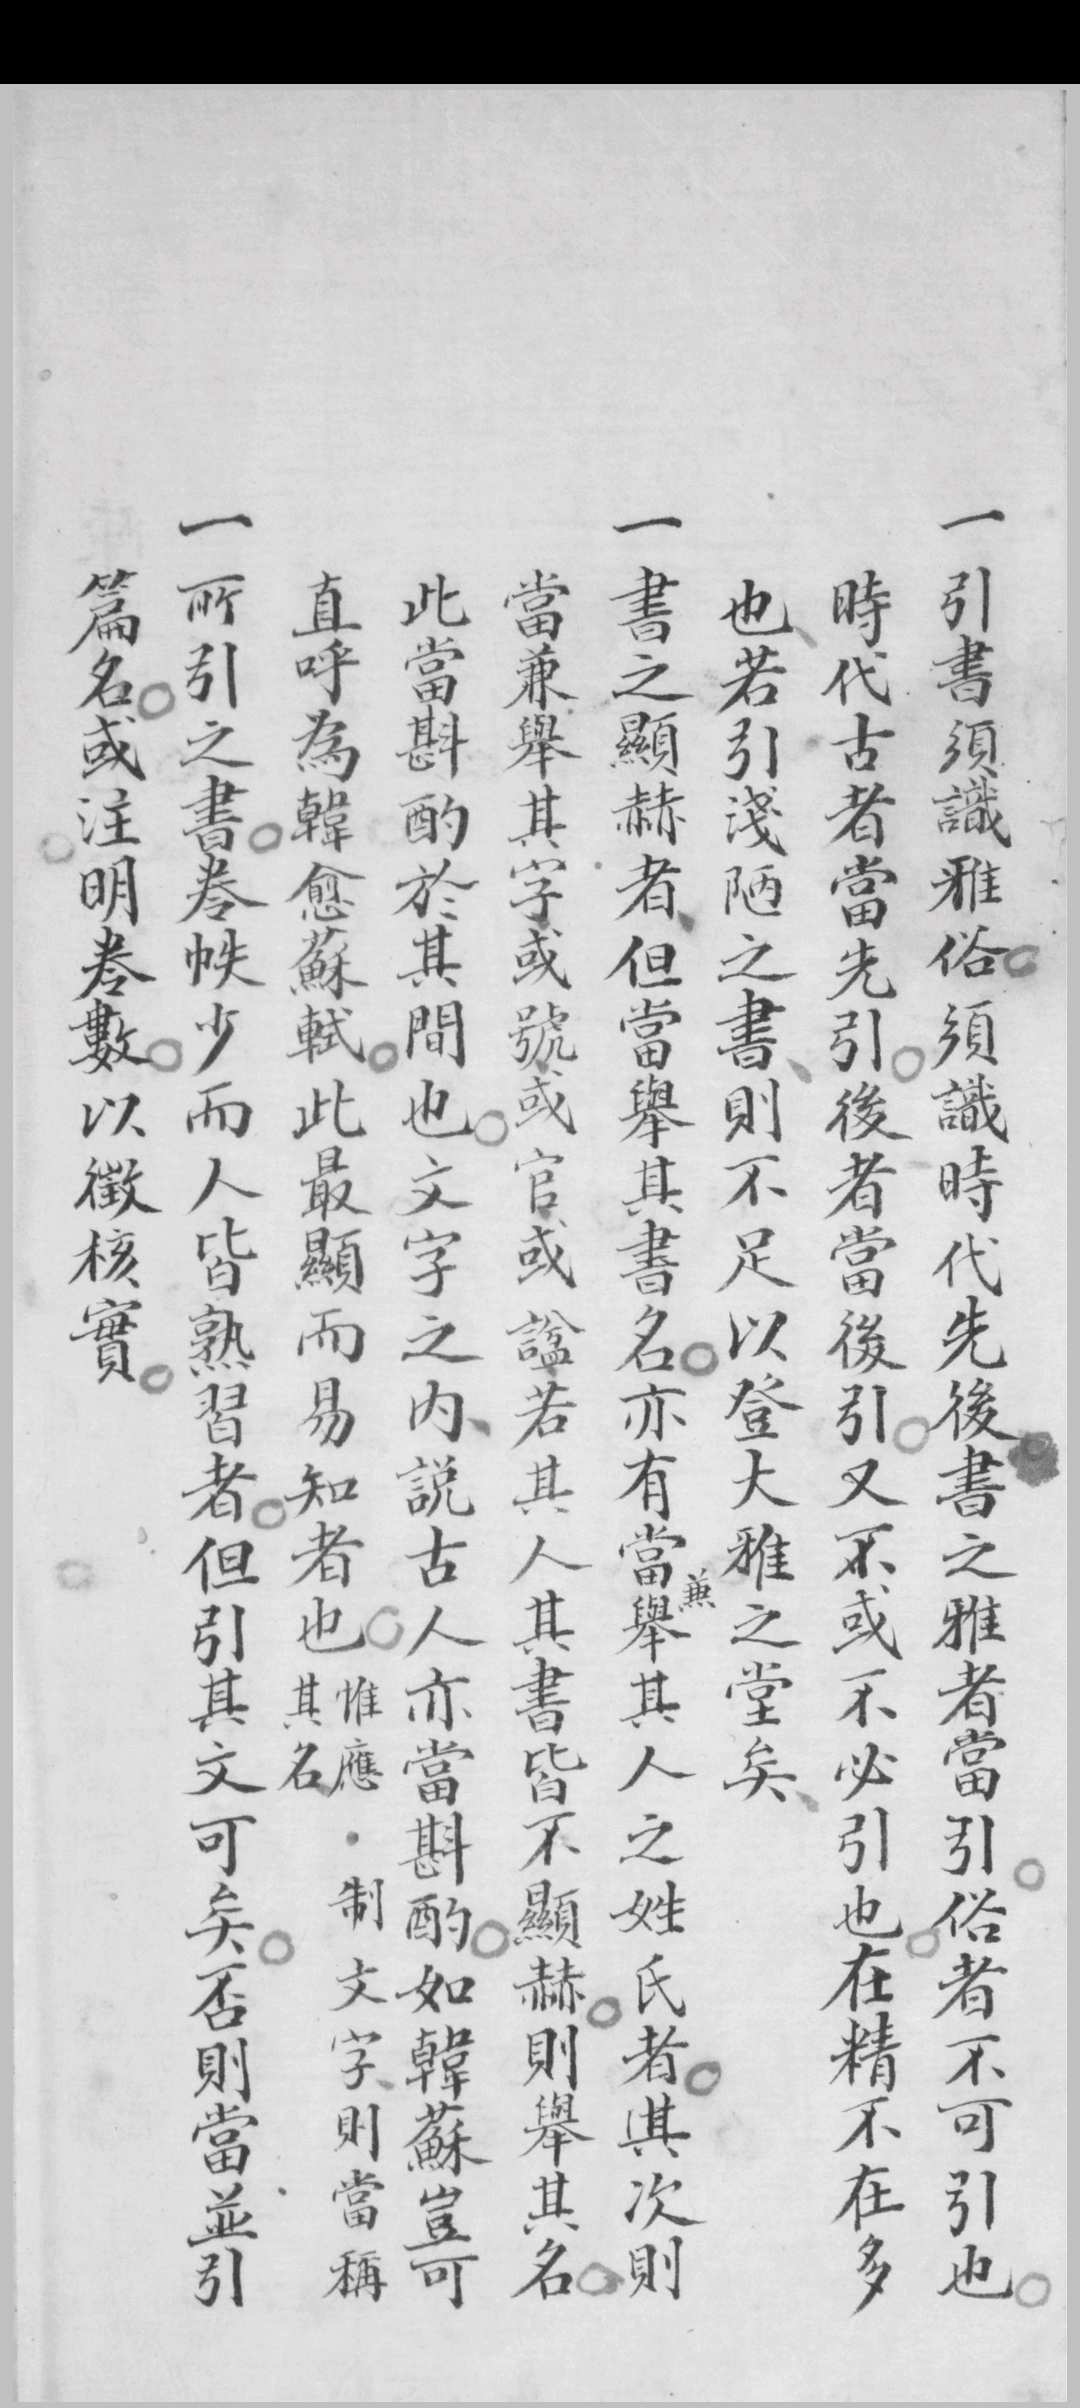 一引書須識雅俗須識時代先後書之雅者當引俗者不可引也
時代古者當先引後者當後引又不或不必引也在精不在多
也若引淺陋之書則不足以登大雅之堂矣
一書之顯赫者但當舉其書名亦有當兼舉其人之姓氏者其次則
當兼舉其字或號或官或諡若其人其書皆不顯赫則舉其名
此當斟酌於其間也文字之内說古人亦當斟酌如韓蘇豈可
直呼為韓愈蘇軾此最顯而易知者也惟應制文字則當稱其名
一所引之書卷帙少而人皆熟習者但引其文可矣否則當並引
篇名或注明卷數以徵核實